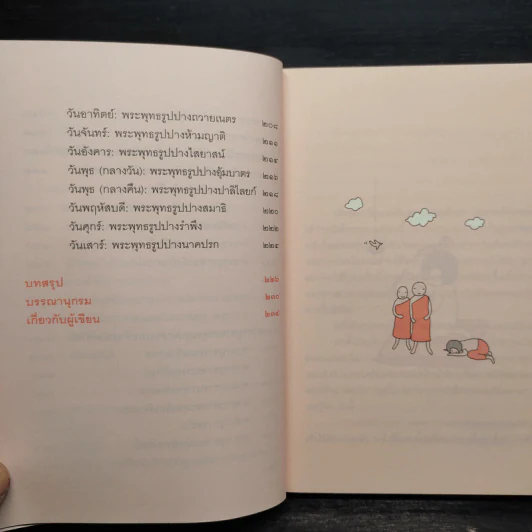 วันอาทิตย์: พระพุทธรูปปางถวายเนตร ๒๐๘
วันจันทร์: พระพุทธรูปปางห้ามญาติ ๒๑๑
วันอังคาร: พระพุทธรูปปางไสยาสน์ ๒๑๔
วันพุธ (กลางวัน): พระพุทธรูปปางอุ้มบาตร ๒๑๖
วันพุธ (กลางคืน): พระพุทธรูปปางปาลิไลยก์ ๒๑๘
วันพฤหัสบดี: พระพุทธรูปปางสมาธิ ๒๒๐
วันศุกร์: พระพุทธรูปปางรำพึง ๒๒๒
วันเสาร์: พระพุทธรูปปางนาคปรก ๒๒๔
บทสรุป ๒๒๖
บรรณานุกรม
เกี่ยวกับผู้เขียน